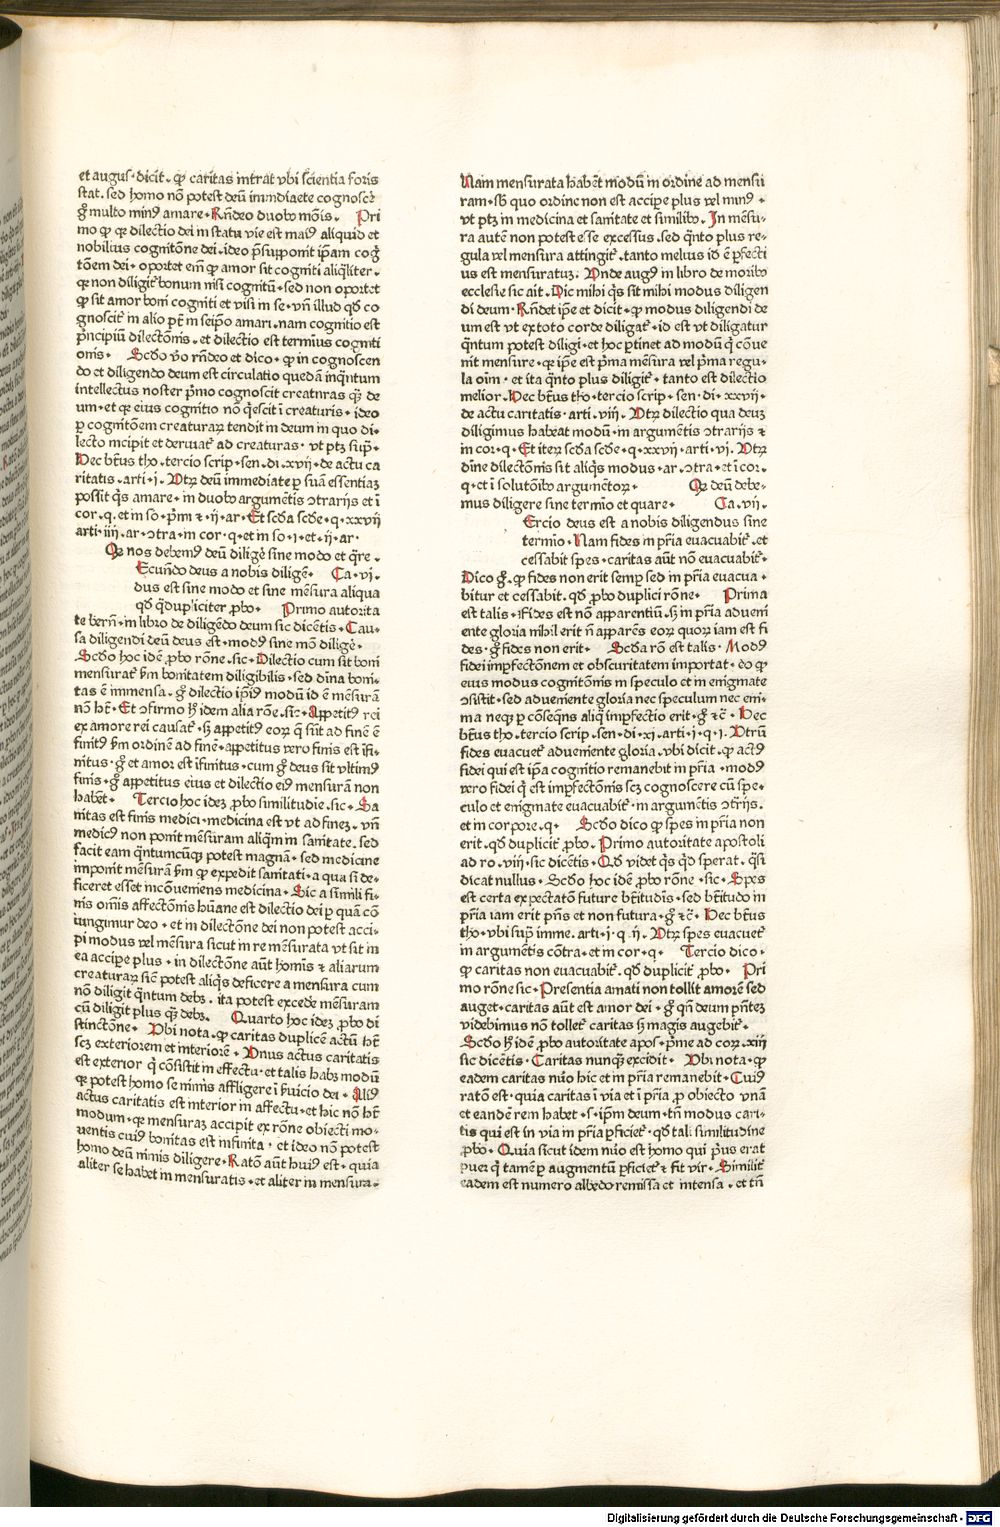 et augus· dicit. ꝙ caritas intrat vbi scientia foris
stat. sed homo nō potest deū inmediaete cognoscẽ
gͦ multo minꝰ amare. Rñdeo duobꝰ mōis. Pri
mo ꝙ qꝛ dilectio dei in statu vie est maiꝰ aliquid et
nobilius cognitōne dei. ideo p̄suppōnit ipam cog
tōem dei. oportet em̄ ꝙ amor sit cogniti aliqliter.
qꝛ non diligit᷑ bonum nisi cognitū. sed non oportet
ꝙ sit amor boni cogniti et visi in se. vñ illud qḋ co
gnoscit᷑ in alio pt̄ in seipo amari. nam cognitio est
p̄ncipiū dilectōnis. et dilectio est termius cogniti
onis. Scḋo vͦo rñdeo et dico. ꝙ in cognoscen
do et diligendo deum est circulatio quedā inqntum
intellectus noster pͥmo cognoscit creaturas qꝫ de
um. et qꝛ eius cognitio nō qͥescit ī creaturis. ideo
ꝑ cognitōem creaturaꝝ tendit in deum in quo di
lecto incipit et deriuat᷑ ad creaturas. vt ptꝫ sup̄.
Hec bt̄us tho. tercio scrip. sen. di. xvij. de actu ca
ritatis. arti. i. Vtꝝ deū immediate ꝑ suā essentiaꝫ
possit qͥs amare. in duobꝰ argumētis ↄtrariis et ī
cor. q. et in so. pͥm̄ ⁊ ij. ar. Et scḋa scḋe. q. xxvij
arti. iiij. ar. ↄtra. in cor. q. et in so. i. et. ij. ar.
Qꝙ nos debemꝰ deū diligẽ sine modo et qͣre.
Ecundo deus a nobis diligẽ. Ca. vi.
dus est sine modo et sine mēsura aliqua
qḋ qͣdupliciter ꝓbo. Primo autorita
te bern. in libro de diligēdo deum sic dicētis. Cau
sa diligendi deū deus est. modꝰ sine mō diligẽ.
Scḋo hoc idē ꝓbo rōne. sic. Dilectio cum sit boni
mensurat᷑ ẜm bonitatem diligibilis. sed dīna boni
tas ē immensa. gͦ dilectio ipiꝰ modū id ē mēsurā
nō hꝫ. Et ↄfirmo ꝉ idem alia rōe. sic. Appetitꝰ rei
ex amore rei causat᷑. ꝉ appetitꝰ eoꝝ qͥ sūt ad finē ē
finitꝰ ẜm ordinē ad finē. appetitus vero finis est īfi
nitus. gͦ et amor est īfinitus. cum gͦ deus sit vltimꝰ
finis. gͦ appetitus eius et dilectio eiꝰ mensurā non
habēt. Tercio hoc ideꝫ ꝓbo similitudie. sic. Sa
nitas est finis medici. medicina est vt ad fineꝫ. vñ
medicꝰ non ponit mēsuram aliqm̄ in sanitate. sed
facit eam qntumcūqꝫ potest magnā. sed medicine
imponit mēsurā ẜm ꝙ expedit sanitati. a qua si de
ficeret esset incōueniens medicina. Sic a simili fi
nis om̄is affectōnis hūane est dilectio dei ꝑ quā cō
iungimur deo. et in dilectōne dei non potest acci
pi modus vel mēsura sicut in re mēsurata vt sit in
ea accipe plus. in dilectōne aūt homīs ⁊ aliarum
creaturaꝝ sic̄ potest aliqͥs deficere a mensura cum
nō diligit qntum debꝫ. ita potest excede mēsuram
cū diligit plus qꝫ debꝫ. Quarto hoc ideꝫ ꝓbo di
stinctōne. Vbi nota. ꝙ caritas duplicē actū hꝫ
scꝫ exteriorem et interiorē. Vnus actus caritatis
est exterior qͥ cōsistit in effectu. et talis habꝫ modū
qꝛ potest homo se nimis affligere ī ẜuicio dei. Aliꝰ
actus caritatis est interior in affectu. et hic nō hꝫ
modum. qꝛ mensuraꝫ accipit ex rōne obiecti mo
uentis cuiꝰ bonitas est infinita. et ideo nō potest
homo deū nimis diligere. Ratō aūt huiꝰ est. quia
aliter se habet in mensuratis. et aliter in mensura.
Nam mensurata habēt modū in ordine ad mensu
ram. sḃ quo ordine non est accipe plus vel minꝰ.
vt ptꝫ in medicina et sanitate et similibꝰ. In mēsu
ra autē non potest esse excessus. sed qnto plus re
gula vel mensura attingit᷑. tanto melius id ē ꝑfecti
us est mensuratuꝫ. Vnde augꝰ in libro de moribꝰ
ecclesie sic ait. Dic mihi qͥs sit mihi modus diligen
di deum. Rñdet ipe et dicit. ꝙ modus diligendi de
um est vt ex toto corde diligat᷑. id est vt diligatur
qntum potest diligi. et hoc ꝑtinet ad modū qͥ cōue
nit mensure. qꝛ ipe est pͥma mēsura vel pͥma regu
la oīm. et ita qnto plus diligit᷑. tanto est dilectio
melior. Hec bt̄us tho. tercio scrip. sen. di. xxvij.
de actu caritatis. arti. viij. Vtꝝ dilectio qua deuꝫ
diligimus habeat modū. in argumētis ↄtrariis ⁊
in cor. q. Et iteꝝ scḋa scḋe. q. xxvij. arti. vj. Vtꝝ
dīne dilectōnis sit aliqͥs modus. ar. ↄtra. et ī cor.
q. et ī solutōibꝰ argumētoꝝ. Qꝙ deū debe
mus diligere sine termīo et quare. Ca. vij.
Ercio deus est a nobis diligendus sine
termīo. Nam fides in pr̄ia euacuabit᷑. et
cessabit spes. caritas aūt nō euacuabit᷑.
Dico gͦ. ꝙ fides non erit semꝑ sed in pr̄ia euacua
bitur et cessabit. qḋ ꝓbo duplici rōne. Prima
est talis. Fides est nō apparentiū. ꝉ in pr̄ia adueni
ente gloria nihil erit n̄ apparēs eoꝝ quoꝝ iam est fi
des. gͦ fides non erit. Scḋa rō est talis. Modꝰ
fidei imꝑfectōnem et obscuritatem importat. eo ꝙ
eius modus cognitōnis in speculo et in enigmate
ↄsistit. sed adueniente gloria nec speculum nec eni
ma neqꝫ ꝑ cōseqͥns aliqͣ imꝑfectio erit. gͦ ⁊c̄. Hec
bt̄us tho. tercio scrip. sen. di. xi. arti. i. q. i. Vtrū
fides euacuet᷑ adueniente gloria. vbi dicit. ꝙ actꝰ
fidei qui est ipa cognitio remanebit in pr̄ia. modꝰ
vero fidei qͥ est imꝑfectōnis scꝫ cognoscere cū spe
culo et enigmate euacuabit᷑. in argumētis ↄtr̄iis.
et in corpore. q. Scḋo dico ꝙ spes in pr̄ia non
erit. qḋ duplicit᷑ ꝓbo. Primo autoritate apostoli
ad ro. viij. sic dicētis. Qḋ videt qͥs qͥd sperat. qͣsi
dicat nullus. Scḋo hoc idē ꝓbo rōne. sic. Spes
est certa expectatō future bt̄itudis. sed bt̄itudo in
pr̄ia iam erit pn̄s et non futura. gͦ ⁊c̄. Hec bt̄us
tho. vbi sup̄ imme. arti. i. q. ij. Vtꝝ spes euacuet᷑
in argumētis cōtra. et in cor. q. Tercio dico.
ꝙ caritas non euacuabit᷑. qḋ duplicit᷑ ꝓbo. Pri
mo rōne sic. Presentia amati non tollit amorē sed
auget. caritas aūt est amor dei. gͦ qn̄ deum pn̄teꝫ
videbimus nō tollet᷑ caritas ꝉ magis augebit᷑.
Scḋo ꝉ idē ꝓbo autoritate apos. pͥme ad coꝝ. xiij
sic dicētis. Caritas nunqꝫ excidit. Vbi nota. ꝙ
eadem caritas nūo hic et in pr̄ia remanebit. Cuiꝰ
ratō est. quia caritas ī via et ī pr̄ia ꝓ obiecto vnā
et eandē rem habet. s. ipm̄ deum. tn̄ modus cari
tis qui est in via in pr̄ia ꝑficiet᷑. qḋ tali similitudine
ꝓbo. Quia sicut idem nūo est homo qui pͥus erat
puer qͥ tamē ꝑ augmentū ꝑficiet᷑ ⁊ fit vir. Similit᷑
eadem est numero albedo remissa et intensa. et tn̄
Digitalisierung gefördert durch die Deutsche Forschungsgemeinschaft - DFG